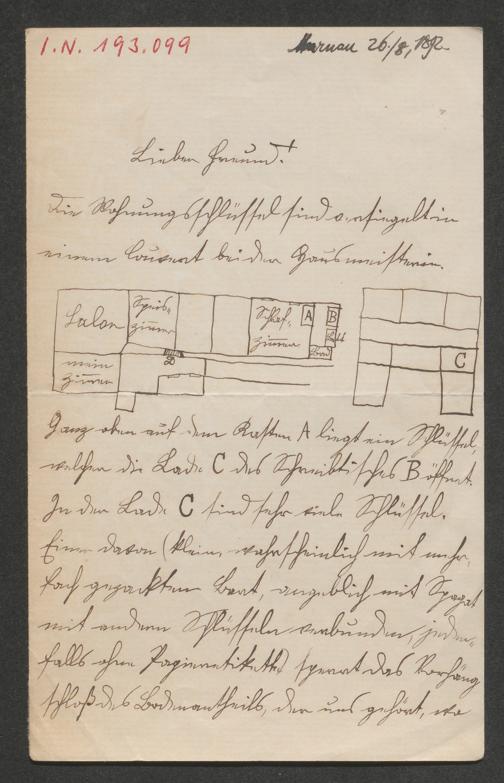 I.N. 193.099
Murnau 26/8, 1892
Lieber Freund!
Die Wohnungsschlüssel sind versiegelt in
einem Couvert bei der Hausmeisterin.
Salon
Speis-
zimmer
Schlaf-
zimmer
A
B
Bad
mein
Zimmer
D
C
Ganz oben auf dem Kasten A liegt ein Schlüssel,
welcher die Lade C des Schreibtisches B öffnet.
In der Lade C sind sehr viele Schlüssel.
Einer davon (klein, wahrscheinlich mit mehr-
fach gezacktem Bart, angeblich mit Spagat
mit andern Schlüsseln verbunden, jeden-
falls ohne Papieretikette) sperrt das Vorhäng-
schloß des Bodenantheils, der uns gehört, wo